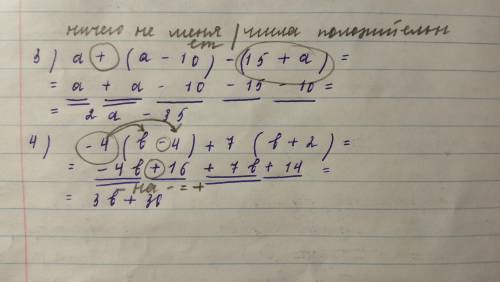 ничего не меняет / числа положительн
3) a + (a - 10) - (15 + a) =
= a + a - 10 - 15 - 10 =
= 2a - 35
4) - 4 (b - 4) + 7 (b + 2) =
= - 4b + 16 + 7b + 14 =
- на - = +
= 3b + 30